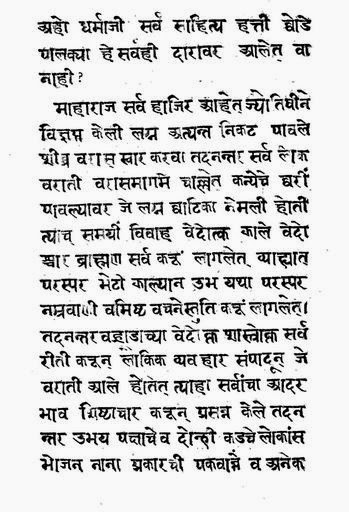 अहो धर्माजी सर्व साहित्य हत्ती घोडे
पालख्या हे सर्वही दारावर आलेत वा
नाही?
माहाराज सर्व हाजिर आहेत ज्योतिषीने
विज्ञप्त केली लग्न अत्यन्त निकट पावले
शीघ्र वरास स्वार करवा तदनन्तर सर्व लोक
वराती वरासमागमे चाल्लेत कन्येचे घरीं
पावल्यावर जे लग्न घाटिका नेमली होती
त्याच समयीं विवाह वेदोक्त काले वेदो
च्चार ब्राह्मण सर्व करूं लागलेत व्याह्यात
परस्पर भेटी काल्यान उभ यथा परस्पर
नम्रवाणी वमिष्ट वचनेस्तुति करूं लागलेत।
तदनन्तर वऱ्हाडाच्या वेदोक्त शास्त्रोक्त सर्व
रीती करून् लौकिक व्यव हार संपादून् जे
वराती आले होतेत त्याहा सर्वांचा आदर
भाव शिष्टाचार करून् प्रसन्न केले तदन
न्तर उभय पक्षाचे व दोन्ही कडचे लोकांस
भोजन नाना प्रकारची पकवान्ने व अनेक